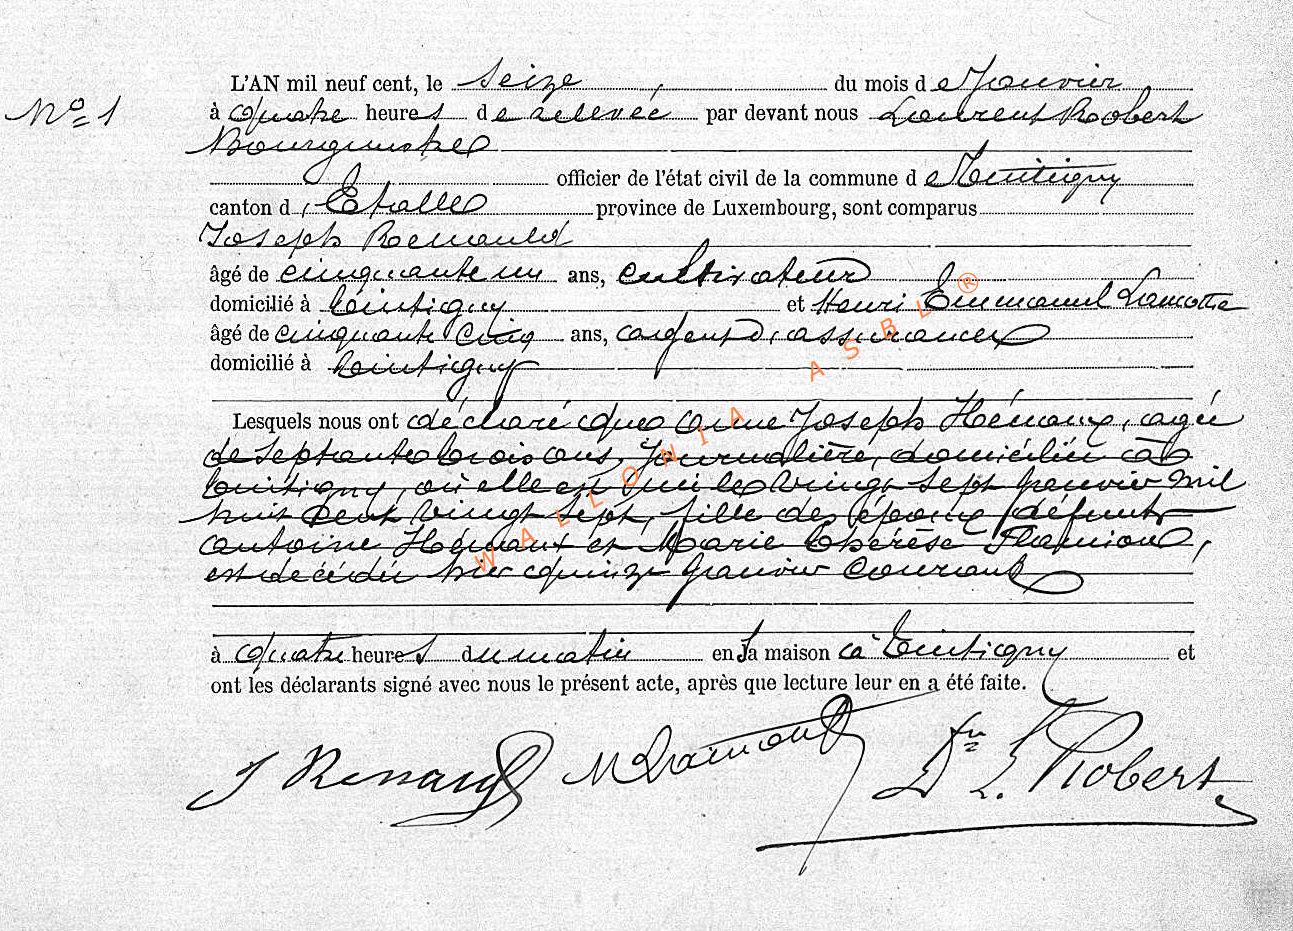 L'AN mil neuf cent, le seize du mois de Janvier
N° 1
à quatre heures de relevée par devant nous Laurent Robert
Bourgmestre
officier de l'état civil de la commune de Tintigny
canton d'Etalle province de Luxembourg, sont comparus
Joseph Renauld
âgé de cinquante un ans, cultivateur
domicilié à Tintigny et Henri Emmanuel Lamotte
âgé de cinquante cinq ans, agent d'assurances
domicilié à Tintigny
Lesquels nous ont déclaré que Anne Joseph Hémaux, agée
de septante trois ans, Journalière, domiciliée à
Tintigny, où elle est née le vingt sept janvier mil
huit cent vingt sept, fille des époux défunts
Antoine Hémaux et Marie Thérèse,
est décédée hier quinze janvier courant
à quatre heures du matin en sa maison à Tintigny et
ont les déclarants signé avec nous le présent acte, après que lecture leur en a été faite.
J Renauld Dr L. Robert
WALLONIA ASBL ®